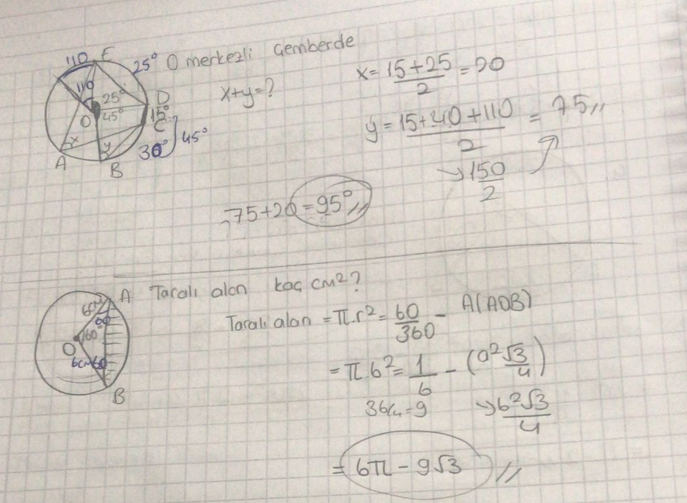 110 E
25° O merkezli Çemberde
x+y=?
x = 15+25 / 2 = 20
110
25°
O 45°
D
15°
C
45°
A x
y
B
30°
y = 15+40+110 / 2 = 75//
→ 150 / 2
75+20 = 95°//
A Taralı alan kaç cm²?
6cm
60
O 60
6cm 60
B
Taralı alan = πr² = 60/360 - A(AOB)
= π6² = 1/6 - (a²√3/4)
36/4=9 → 6²√3/4
= 6π - 9√3 //